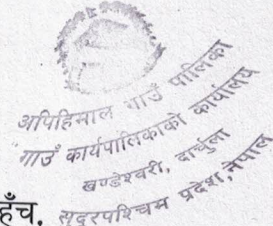 अपिहिमाल गाउँ पालिका
गाउँ कार्यपालिकाको कार्यालय
खण्डेश्वरी, दार्चुला
सुदूरपश्चिम प्रदेश, नेपाल
हुँच.